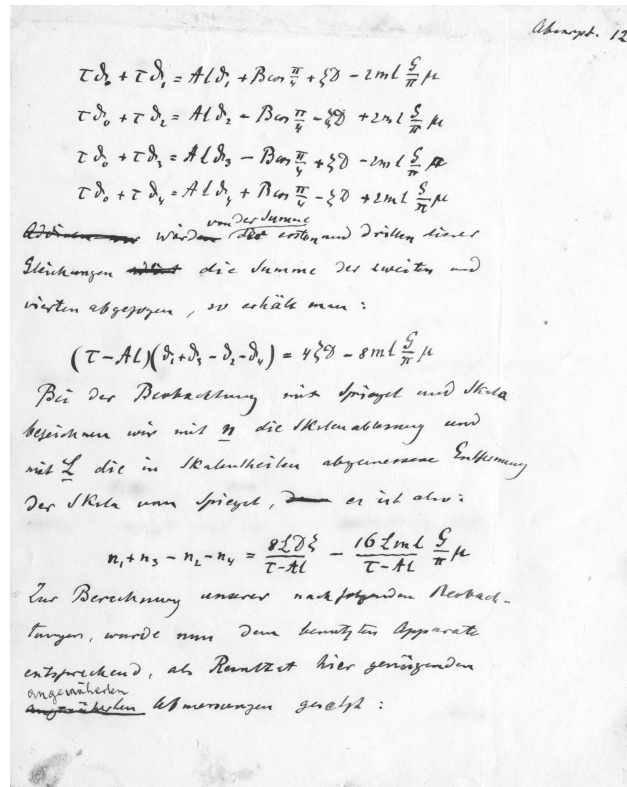 12
τϑ₀ + τϑ₁ = Alϑ₁ + B cos π/4 + ξD − 2ml G/π μ
τϑ₀ + τϑ₂ = Alϑ₂ − B cos π/4 − ξD + 2ml G/π μ
τϑ₀ + τϑ₃ = Alϑ₃ − B cos π/4 + ξD − 2ml G/π μ
τϑ₀ + τϑ₄ = Alϑ₄ + B cos π/4 − ξD + 2ml G/π μ
von der Summe
ersten und dritten dieser
Gleichungen die Summe der zweiten und
vierten abgezogen, so erhält man:
(τ − Al)(ϑ₁+ϑ₃ − ϑ₂ − ϑ₄) = 4ξD − 8ml G/π μ
Bei der Beobachtung mit Spiegel und Skala
bezeichnen wir mit n die Skalenablesung und
mit L die in Skalentheilen abgemessene Entfernung
der Skala vom Spiegel, es ist also:
n₁ + n₃ − n₂ − n₄ = 8LDξ/τ−Al − 16Lml/τ−Al G/π μ
Zur Berechnung unserer nachfolgenden Beobach-
tungen, wurde nun dem benutzten Apparate
entsprechend, als Resultat hier genügenden
angenäherten
Abmessungen gesetzt: